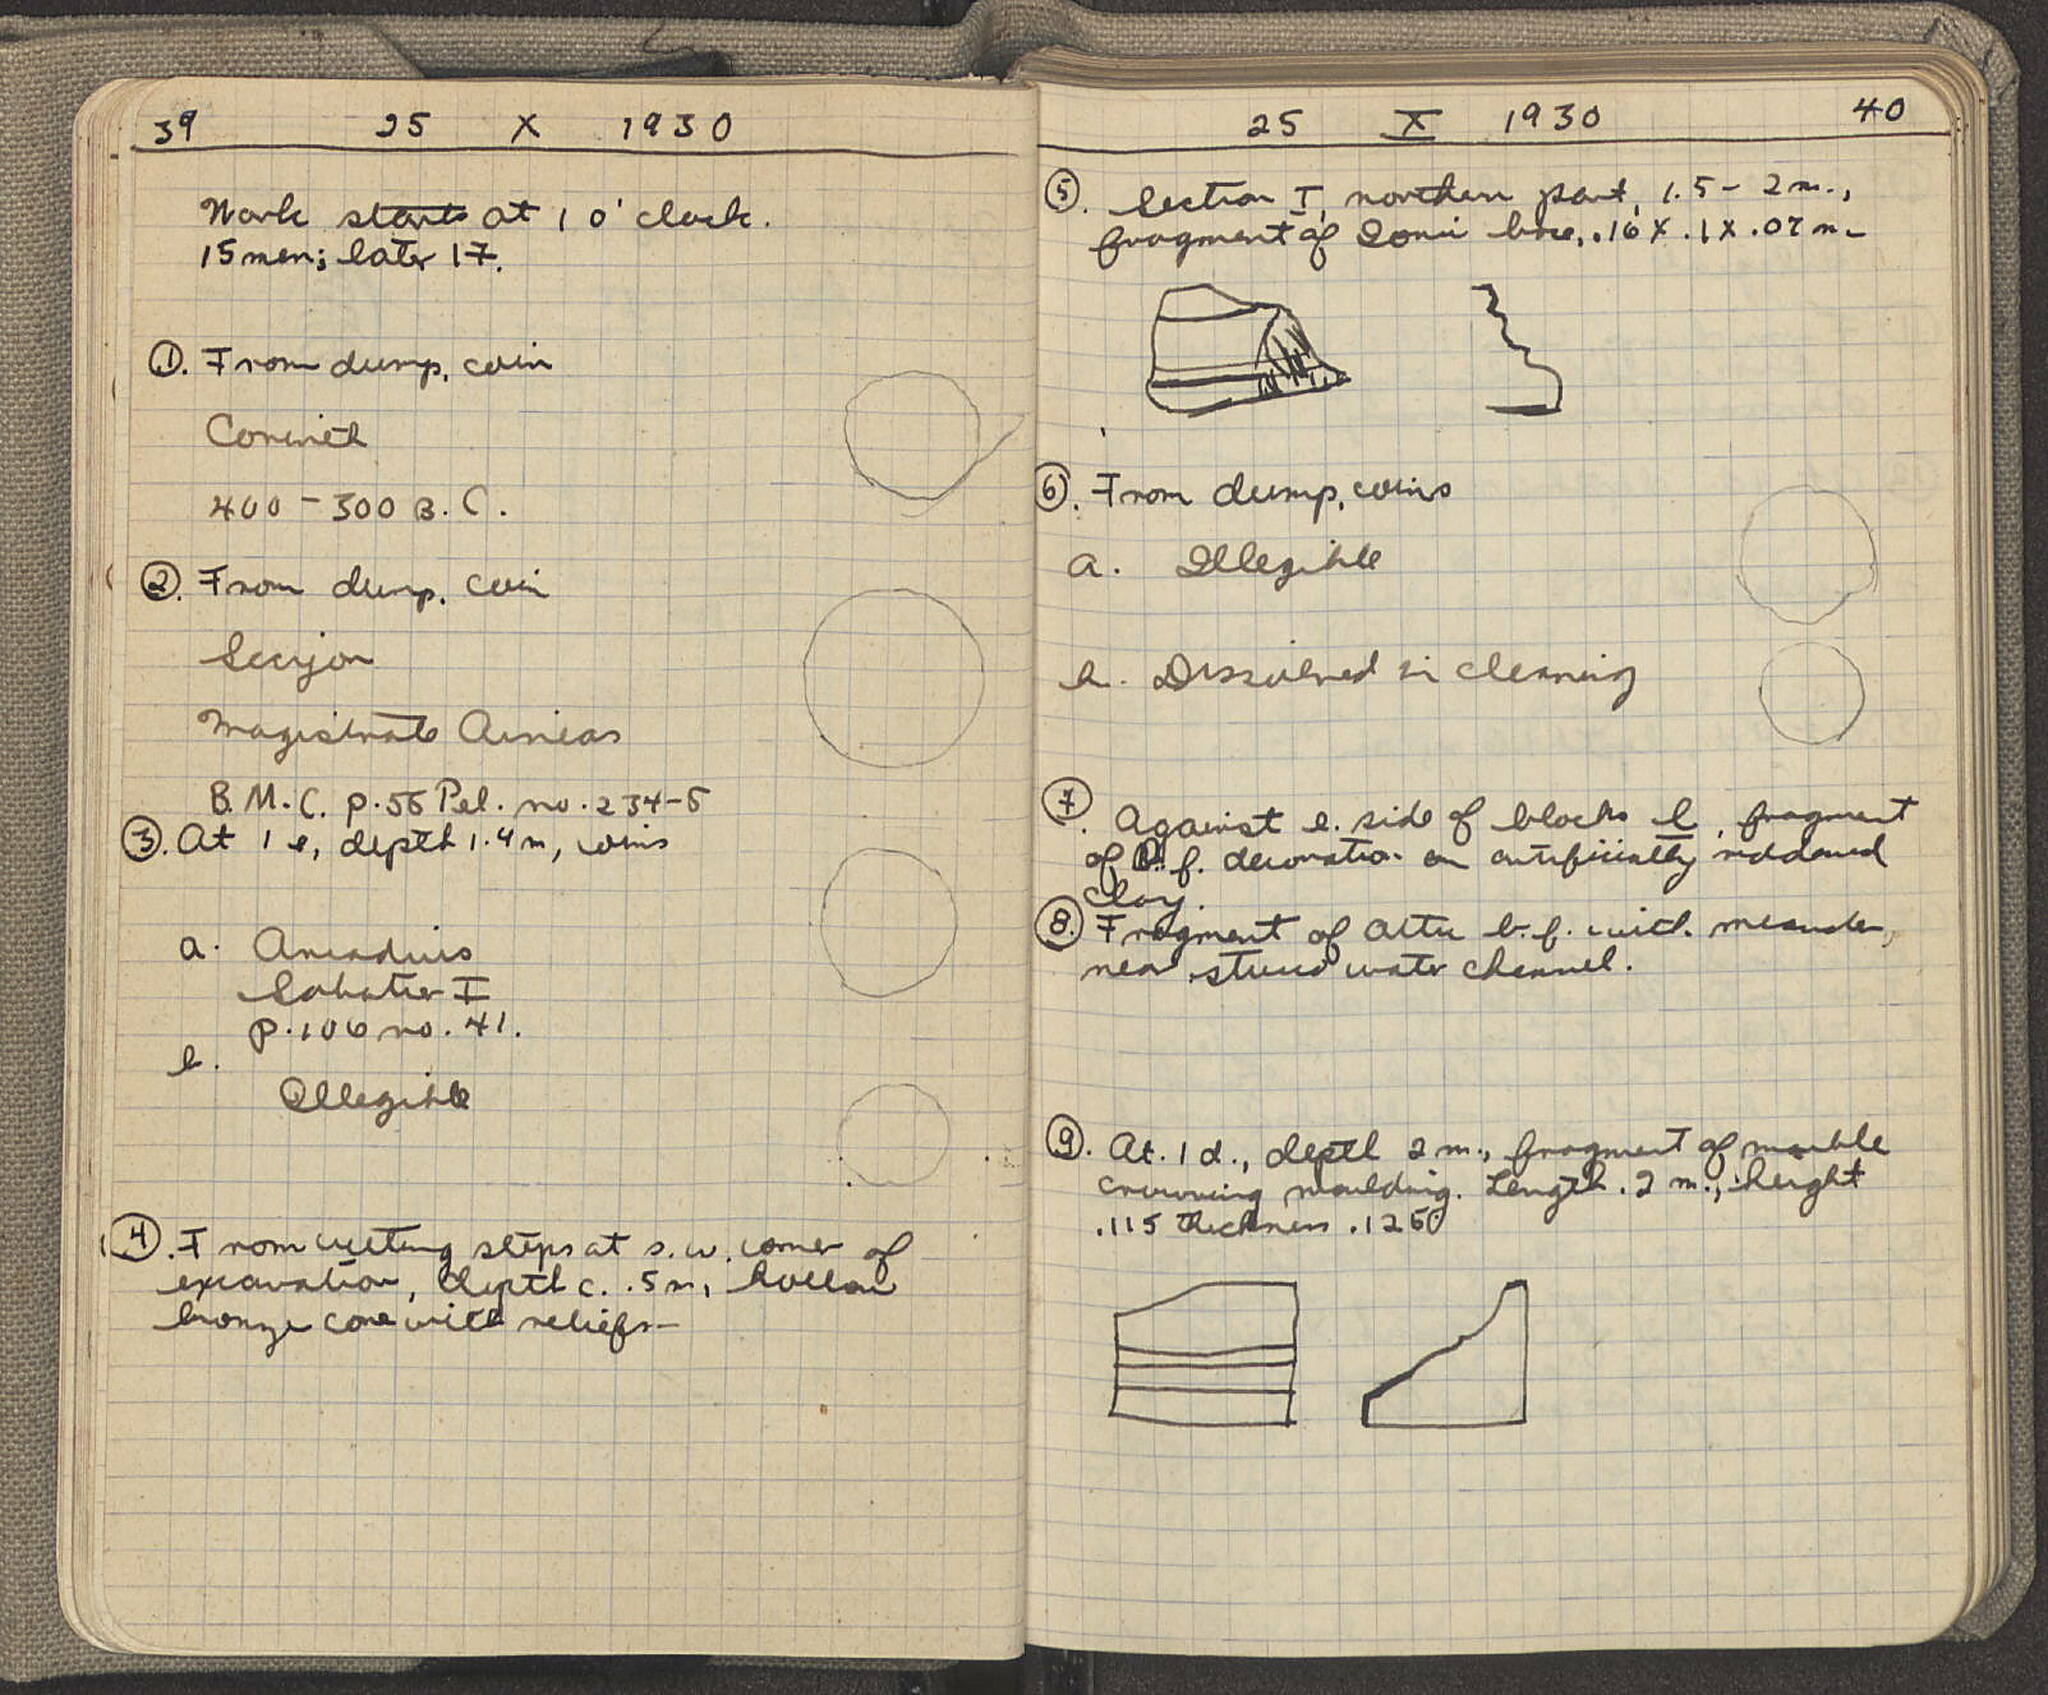 39 25 X 1930
Work starts at 1 o'clock.
15 men; later 17.
①. From dump, coin
Corinth
400 - 300 B.C.
②. From dump, coin
Sicyon
Magistrate Aineas
B.M.C. p. 56 Pel. no. 234-5
③. At 1 e, depth 1.4 m, coins
a. Arcadius
Sabatier I
p. 106 no. 41.
b.
Illegible
④. From cutting steps at s.w. corner of
excavation, depth c. .5 m, hollow
bronze cone with reliefs—
25 X 1930 40
⑤. Section I, northern part, 1.5 - 2 m.,
fragment of Ionic base, .16 X .1 X .07 m.
⑥. From dump, coins
a. Illegible
b. Dissolved in cleaning
⑦. Against e. side of blocks l, fragment
of b.f. decoration on artificially reddened
clay.
⑧. Fragment of Attic b.f. with meander,
near stucco water channel.
⑨. At 1 d., depth 2 m., fragment of marble
crowning moulding. Length .2 m., height
.115 thickness .125